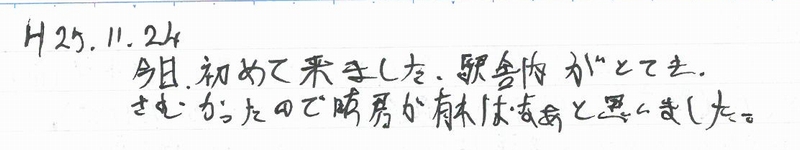 H25.11.24
今日、初めて来ました。駅舎内がとても、
さむかったので暖房が有ればなあと思いました。